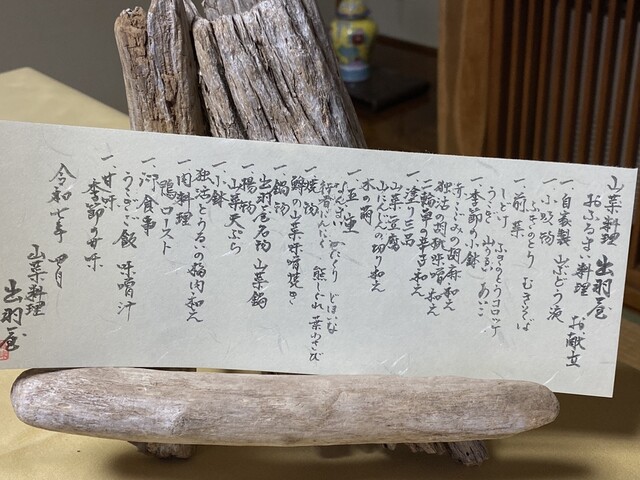 山菜料理 出羽屋
おふるまい料理 お献立
一、自家製 山ぶどう液
一、小吸物
ふきのとり むきそば
一、前菜
ふきのとうコロッケ
しどけ
うこぎ 山うるい あいこ
一、季節の小鉢
赤こごみの胡麻和え
独活の胡桃味噌和え
二輪草の辛子和え
一、塗り三品
山菜豆腐
山にんじんの切り和え
木の萌
一、五連
なんまい かたくり どほいな
行者にんにく 熊しぐれ 葉わさび
一、焼物
鱒の山菜味噌焼き
一、鍋物
出羽屋名物 山菜鍋
一、揚物
山菜天ぷら
一、小鉢
独活とうるいの梅肉和え
一、肉料理
鴨ロースト
一、御食事
うこぎご飯 味噌汁
一、甘味
季節の甘味
令和七年 四月
山菜料理
出羽屋